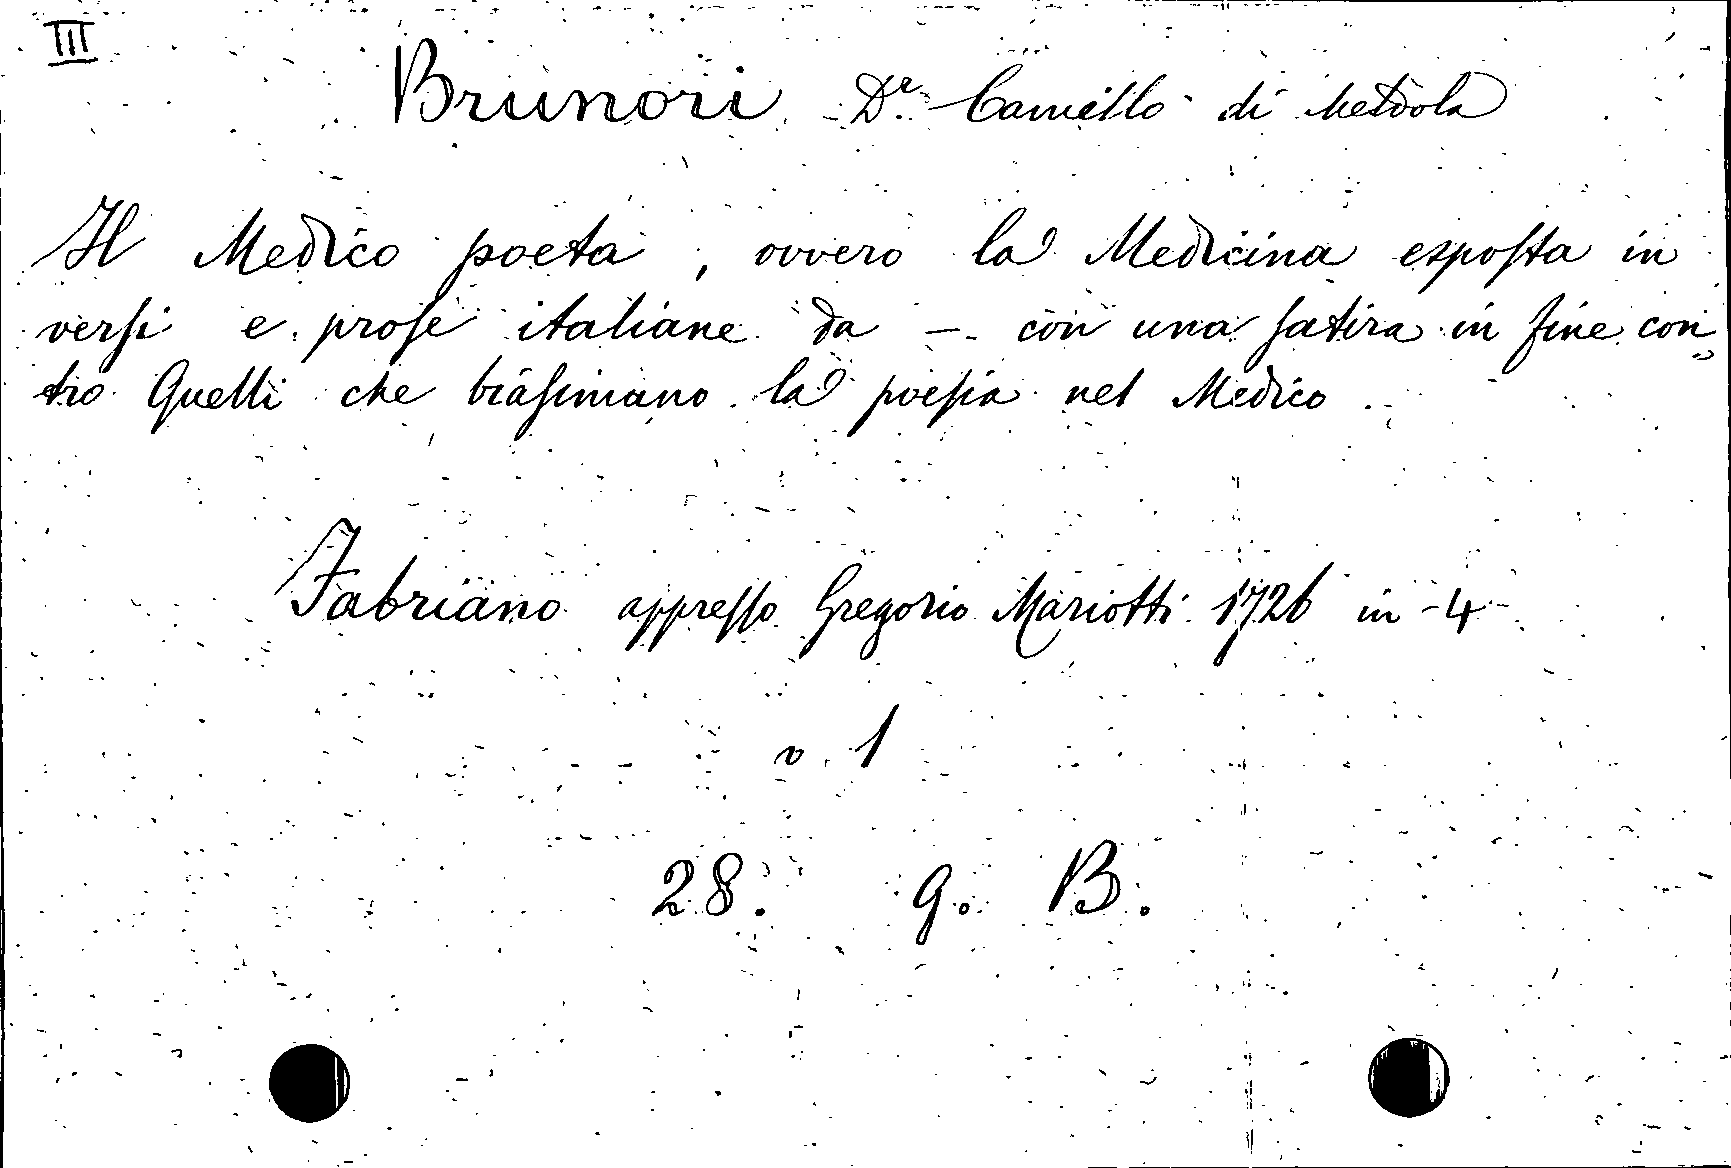 III
Brunori Dr. Camillo di Meldola
Il Medico poeta, ovvero la Medicina esposta in
versi e prose italiane da — con una satira in fine con„
tro Quelli che biasimano la poesia nel Medico.
Fabriano appresso Gregorio Mariotti 1726 in-4
v. 1
28. 9. B.